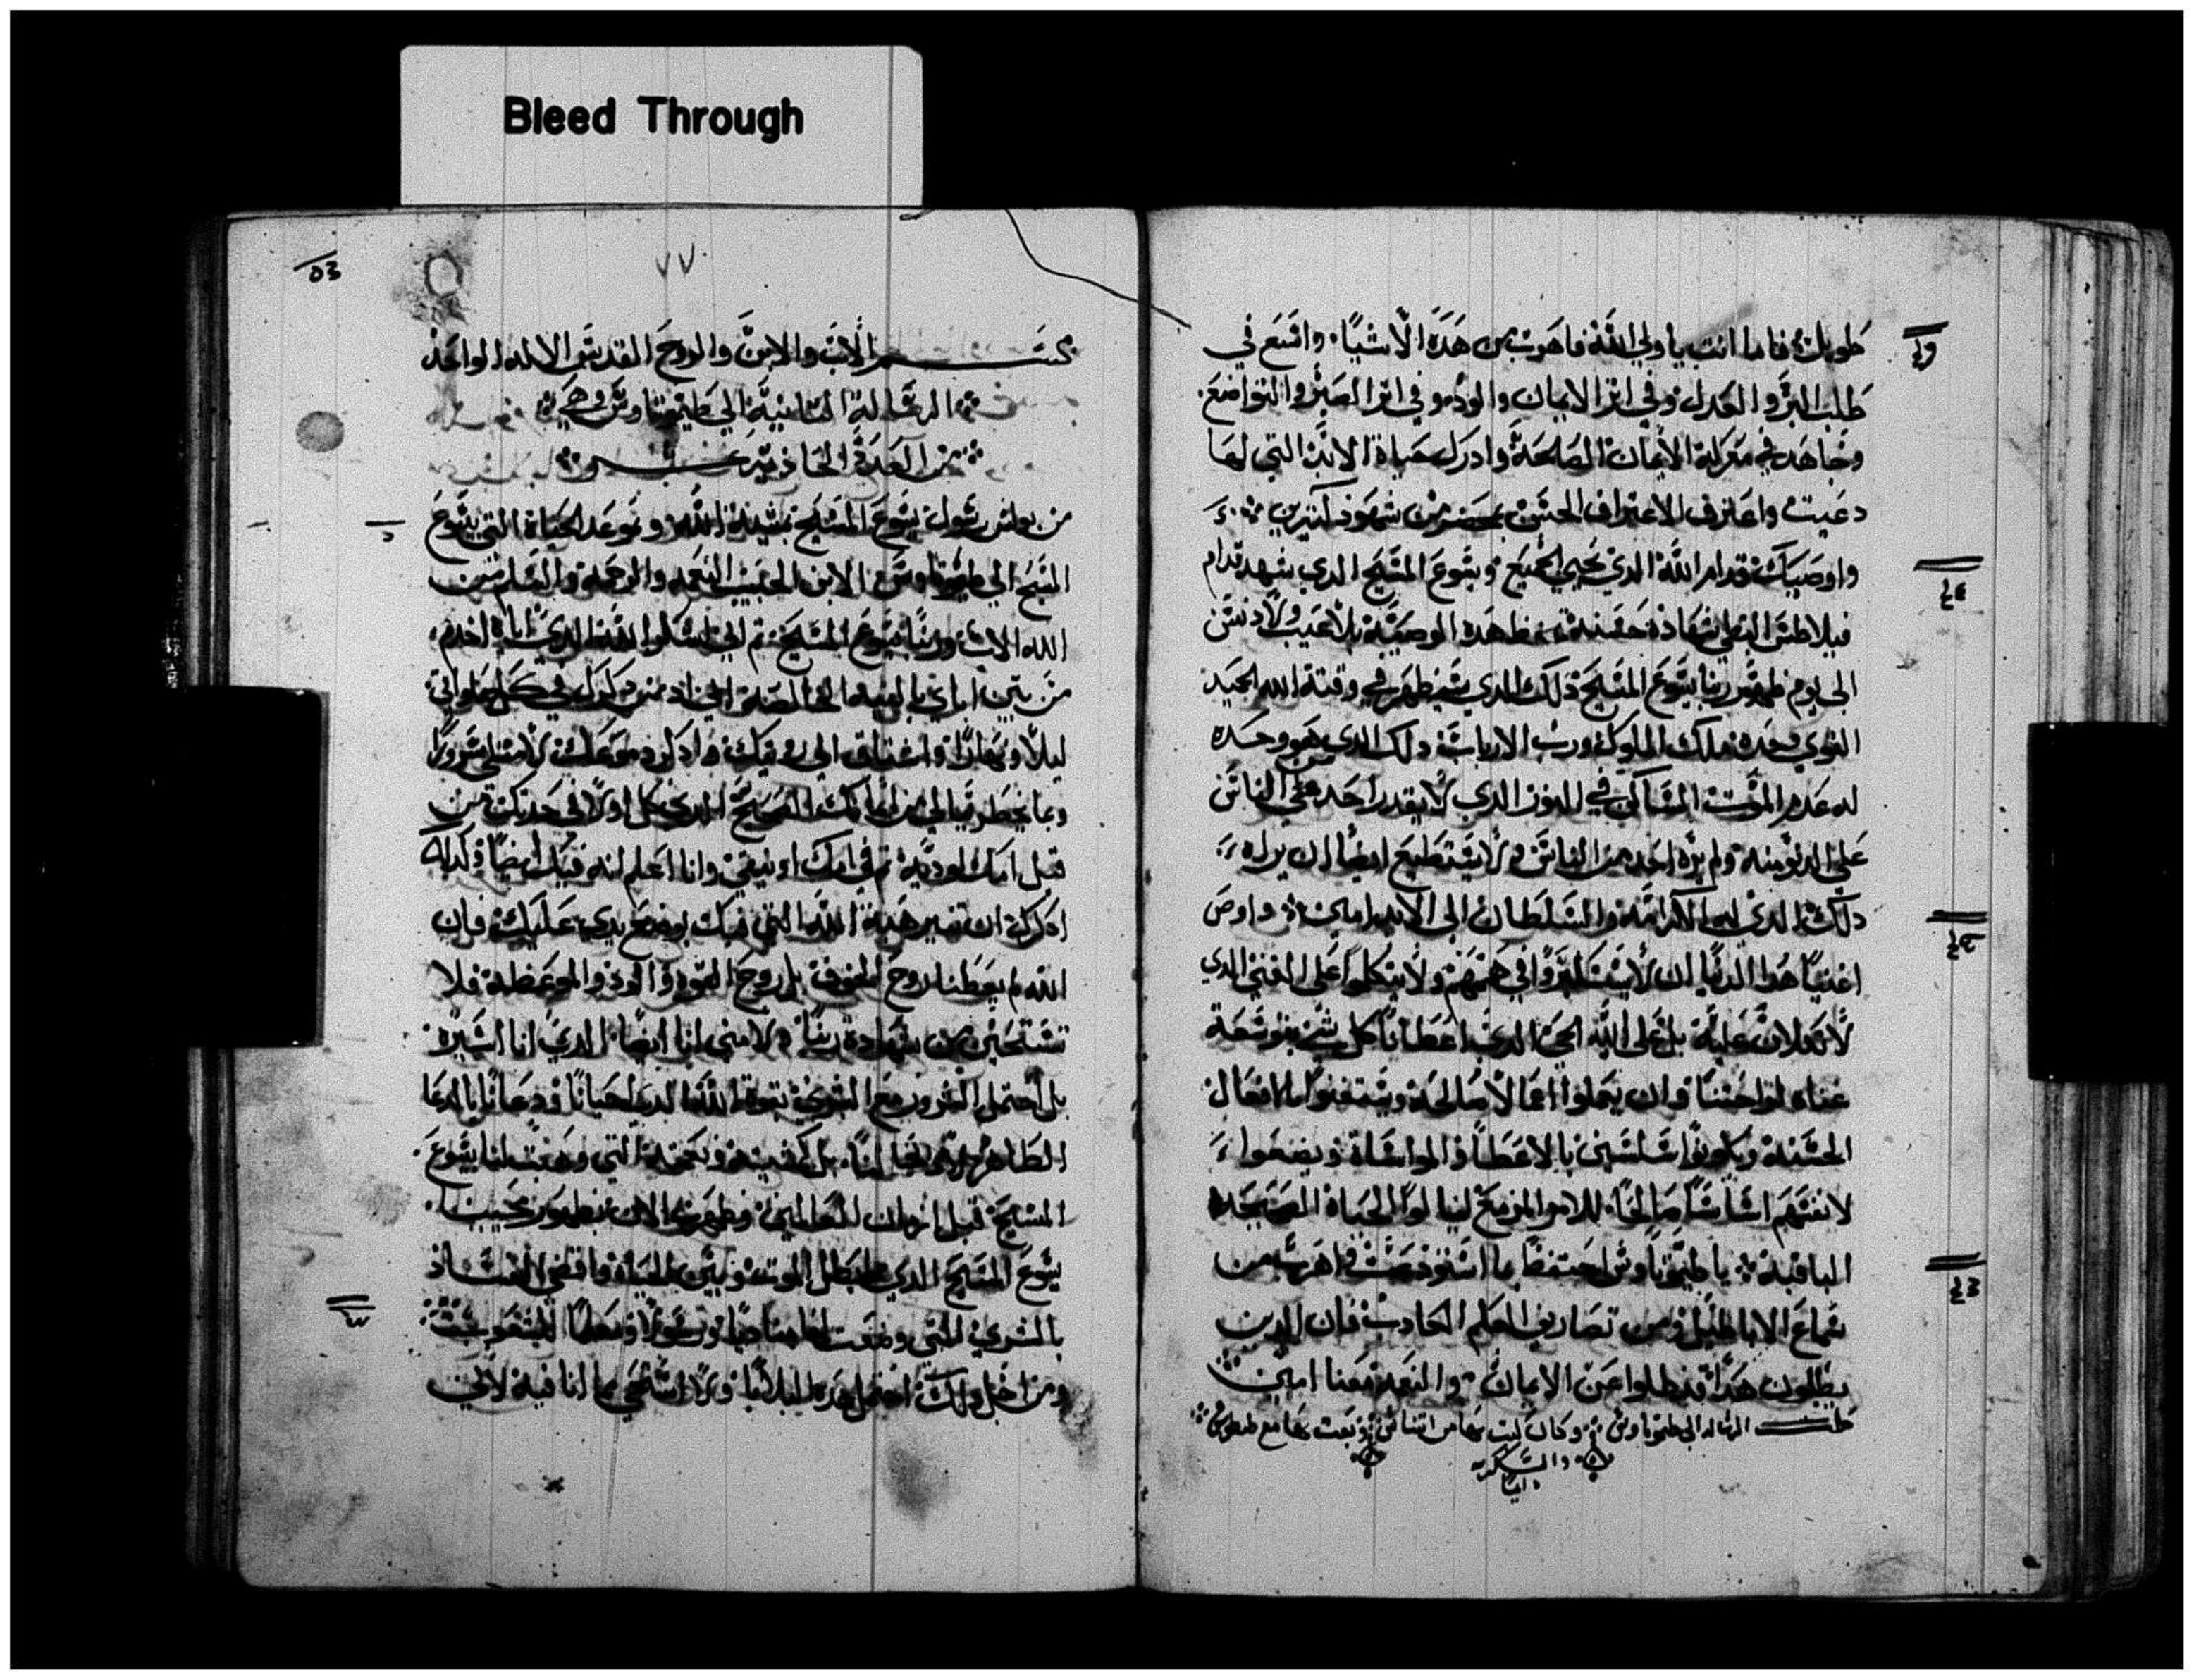 Bleed Through
طويلة فاما انت يا ولي الله فاهرب من هده الاشيا واسع في
طلب البر والعدل وفي اتر الايمان والود وفي اتر الصبر والتواضع
وجاهد في معركة الايمان الصالحة وادرك حياة الابد التي لها
دعيت واعترف الاعتراف الحسن بمحضر من شهود كتيرين
واوصيك قدام الله الدي يحيي الجميع ويسوع المسيح الدي شهد قدام
فيلاطس النبطي شهادة حسنة تحفظ هده الوصية بلا عيب ولا دنس
الى يوم ظهور ربنا يسوع المسيح دلك الدي سيظهر في وقته الله المجيد
القوي وحده ملك الملوك ورب الارباب دلك الدي هو وحده
له عدم الموت الساكن في النور الدي لا يقدر احد من الناس
على الدنو منه ولم يره احد من الناس ولا يستطيع ايضا ان يراه
دلك الدي له الكرامة والسلطان الى الابد امين واوص
اغنيا هدا الدنيا ان لا يستكبروا في هممهم ولا يتكلوا على الغنى الدي
لا تكلان عليه بل على الله الحي الدي اعطانا كل شي بتوسعة
غناه لنواحتنا وان يعملوا اعمالا صالحة ويستغنوا بالافعال
الحسنة ويكونوا سلسين بالاعطا والمواساة ويضعوا
لانفسهم اساسا صالحا للامر المزمع لينالوا الحياة الصحيحة
الباقية يا طيموتاوس احتفظ بما استودعت واهرب من
سماع الاباطيل ومن تصاريف العلم الكادب فان الدين
يطلبون هدا قد ضلوا عن الايمان والنعمة معنا امين
كملت الرساله الى طيموتاوس وكان كتب بها من اتناس وبعت بها مع طيطوس
والسكر لله
دايما
٧٧
بسم الاب والابن والروح القدس الاله الواحد
الرسالة التانية الى طيموتاوس وهي
من العدة الحادية عشر
من بولس رسول يسوع المسيح بمشية الله وبوعد الحياة التي بيسوع
المسيح الى طيموتاوس الابن الحبيب النعمه والرحمة والسلم من
الله الاب وربنا يسوع المسيح تم اني اشكر الله الدي اياه اخدم
من اباي بالنيه الخالصة اني ادمن دكرك في كل صلواتي
ليلا ونهارا واشتاق الى رويتك وادكر دموعك لامتلي سرورا
وبما يخطر ببالي من ايمانك الصحيح الدي حل اولا في جدتك من
قبل امك لوديه تم في امك اونيقي وانا اعلم انه فيك ايضا ولدلك
ادكرك ان تتير هبة الله التي فيك بوضع يدي عليك فان
الله لم يعطنا روح الخوف بل روح القوة والود والموعظة فلا
تستحين من شهادة ربنا ولا مني انا ايضا الدي انا اسيره
بل احتمل الشرور مع البشري بقوة الله الدي احيانا ودعانا بالدعا
الطاهر لا باعمالنا بل كمشيته ونعمته التي وهبت لنا بيسوع
المسيح قبل ازمان العالمين وظهرت الان بظهور محيينا
يسوع المسيح الدي ابطل الموت وبين الحياة وما قضي الفساد
بالبشري التي وضعت انا مناديا ورسولا ومعلما للشعوب
ومن اجل دلك احتمل هده البلايا ولا استحي بما انا فيه لاني